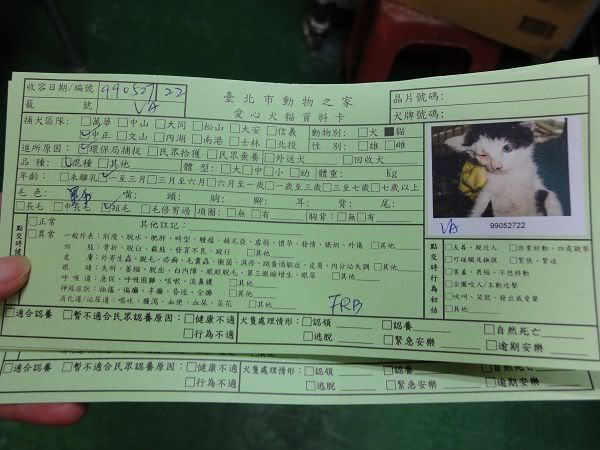 收容日期/編號 990527 22
籠 號 VA
臺北市動物之家
愛心犬貓資料卡
晶片號碼:
犬牌號碼:
捕犬區隊: □萬華 □中山 □大同 □松山 □大安 □信義 動物別: □犬 ■貓
中正 □文山 □內湖 □南港 □士林 □北投 性 別: □雄 □雌
進所原因: 環保局捕捉 □民眾拾獲 □民眾棄養 □外送犬 □回收犬
品 種: 混種 □其他 體 型: □大 □中 □小 □幼 體重: Kg
年齡: □未離乳 至三月 □三月至六月 □六月至一歲 □一歲至三歲 □三至七歲 □七歲以上
毛 色: 嘴: 頭: 胸: 腳: 耳: 背: 尾:
□長毛 □中長毛 短毛 □毛修剪過 項圈: □無 □有 胸背: □無 □有
VA 99052722
點交時狀
□正常
□異常
其他註記:
一般外表: 削瘦、脫水、肥胖、畸型、腫瘤、赫尼亞、虛弱、懷孕、發情、脹奶、外傷 □其他
四 肢: 骨折、脫臼、截肢、發育不良、跛行 □其他
皮 膚: 外寄生蟲、脫毛、疥癬、毛囊蟲、黴菌、濕疹、
眼 睛: 失明、萎縮、脫出、白內障、眼瞼脫毛、第三眼瞼增生、眼屎 □其他
呼 吸 道: 急促、呼吸困難、咳嗽、流鼻膿 □其他
神經症狀: 抽搐、偏癱、半癱、昏迷、全癱 □其他
消化道/泌尿道: 嘔吐、腹瀉、血便、血尿、菜花 □其他
FRB
點交時行為初估
□友善、親近人 □非常好動、四處觀察
□可碰觸及撫摸 □緊張、緊迫
□害羞、畏縮、不想移動
□企圖咬人/主動攻擊
□吠叫、哭號、發出威脅聲
□其他
□適合認養 □暫不適合民眾認養原因: □健康不適 犬隻處理情形: □認領 □認養 □自然死亡
□行為不適 □逃脫 □緊急安樂 □逾期安樂
□適合認養 □暫不適合民眾認養原因: □健康不適 犬隻處理情形: □認領 □認養 □自然死亡
□行為不適 □逃脫 □緊急安樂 □逾期安樂